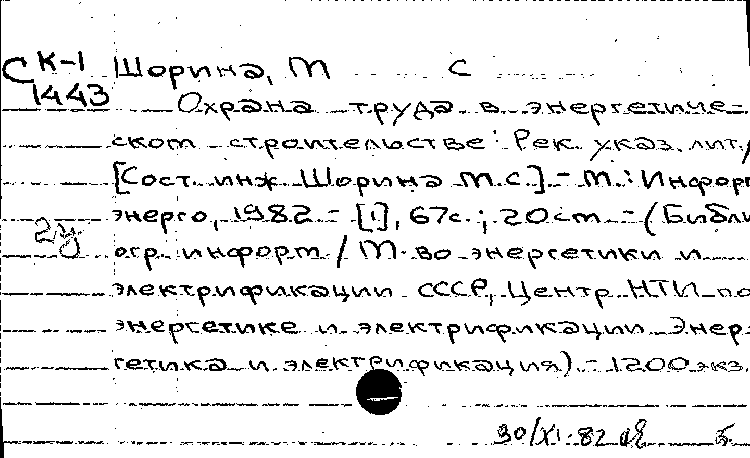 СК-1 Шорина, М С
1443 Охрана труда в энергетиче-
ском строительстве: Рек. указ. лит./
[Сост. инж. Шорина М.С.] - М.: Информ
энерго, 1982. - [1], 67с.; 20см - (Библи
2у огр. информ / М-во энергетики и
электрификации СССР, Центр НТИ по
энергетике и электрификации. Энер-
гетика и электрификация). - 1200 экз.
30/XI-82